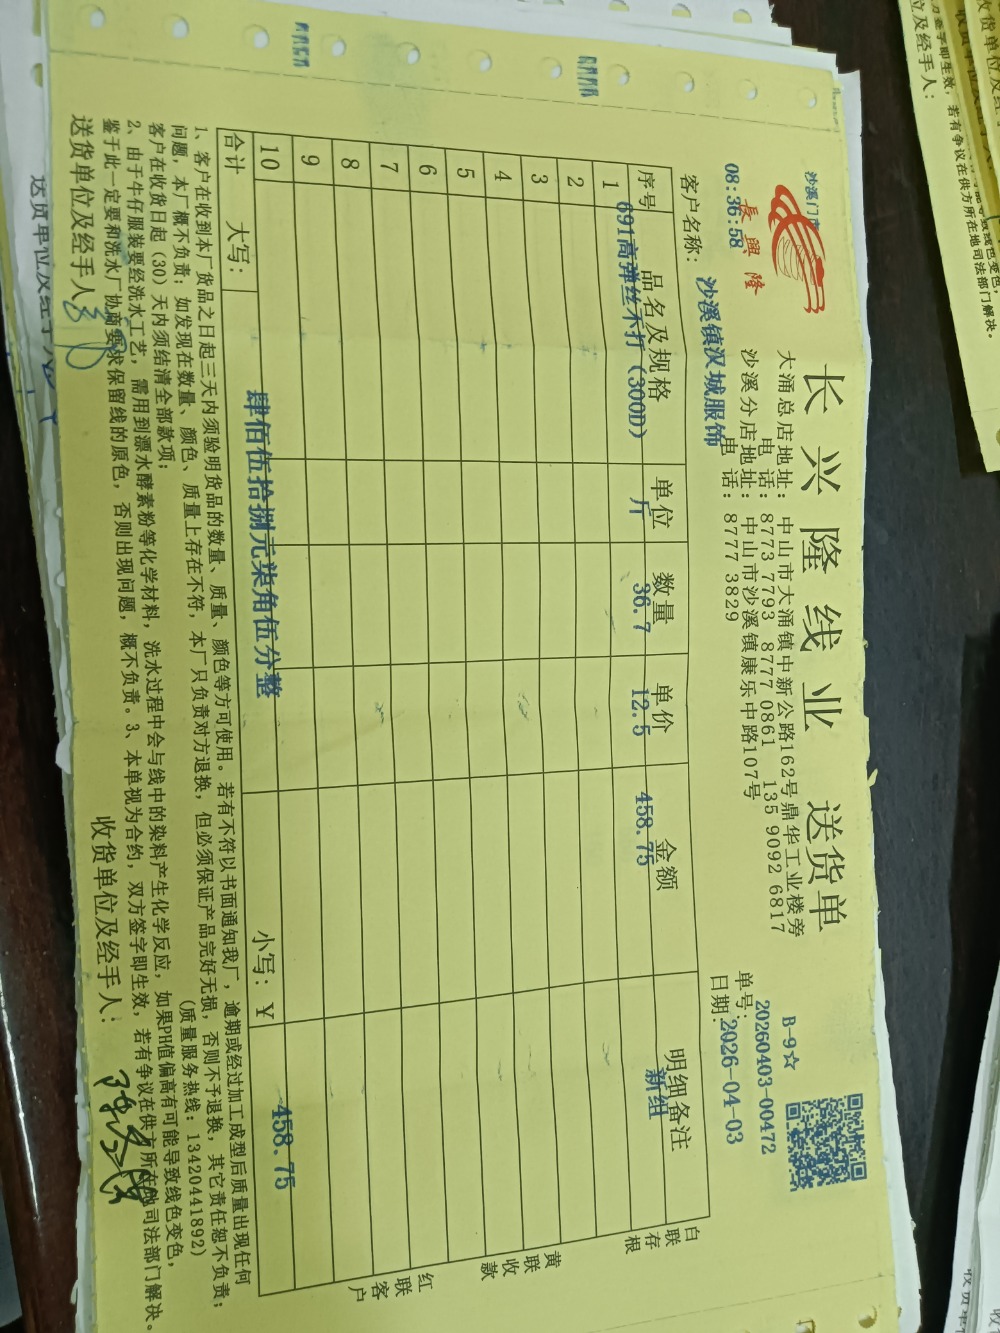 长兴隆线业 送货单
沙溪门市
長興隆
08:36:58
大涌总店地址: 中山市大涌镇中新公路162号鼎华工业楼旁
电 话: 8773 7793 8777 0861 135 9092 6817
沙溪分店地址: 中山市沙溪镇康乐中路107号
电 话: 8777 3829
B-9☆
单号: 20260403-00472
日期: 2026-04-03
客户名称: 沙溪镇汉城服饰
序号 品名及规格 单位 数量 单价 金额 明细备注
1 691高弹丝不打(300D) 斤 36.7 12.5 458.75 新组
2
3
4
5
6
7
8
9
10
合计 大写: 肆佰伍拾捌元柒角伍分整 小写: ¥ 458.75
白联存根
黄联收款
红联客户
1、客户在收到本厂货品之日起三天内须验明货品的数量、质量、颜色等方可使用。若有不符以书面通知我厂,逾期或经过加工成型后质量出现任何
问题,本厂概不负责;如发现在数量、颜色、质量上存在不符,本厂只负责对方退换,但必须保证产品完好无损,否则不予退换,其它责任恕不负责;
客户在收货日起(30)天内须结清全部款项; (质量服务热线:13420441892)
2、由于牛仔服装要经洗水工艺,需用到漂水酵素粉等化学材料,洗水过程中会与线中的染料产生化学反应,如果PH值偏高有可能导致线色变色,
鉴于此一定要和洗水厂协商要求保留线的原色,否则出现问题,概不负责。3、本单视为合约,双方签字即生效,若有争议在供方所在地司法部门解决。
送货单位及经手人: 收货单位及经手人: